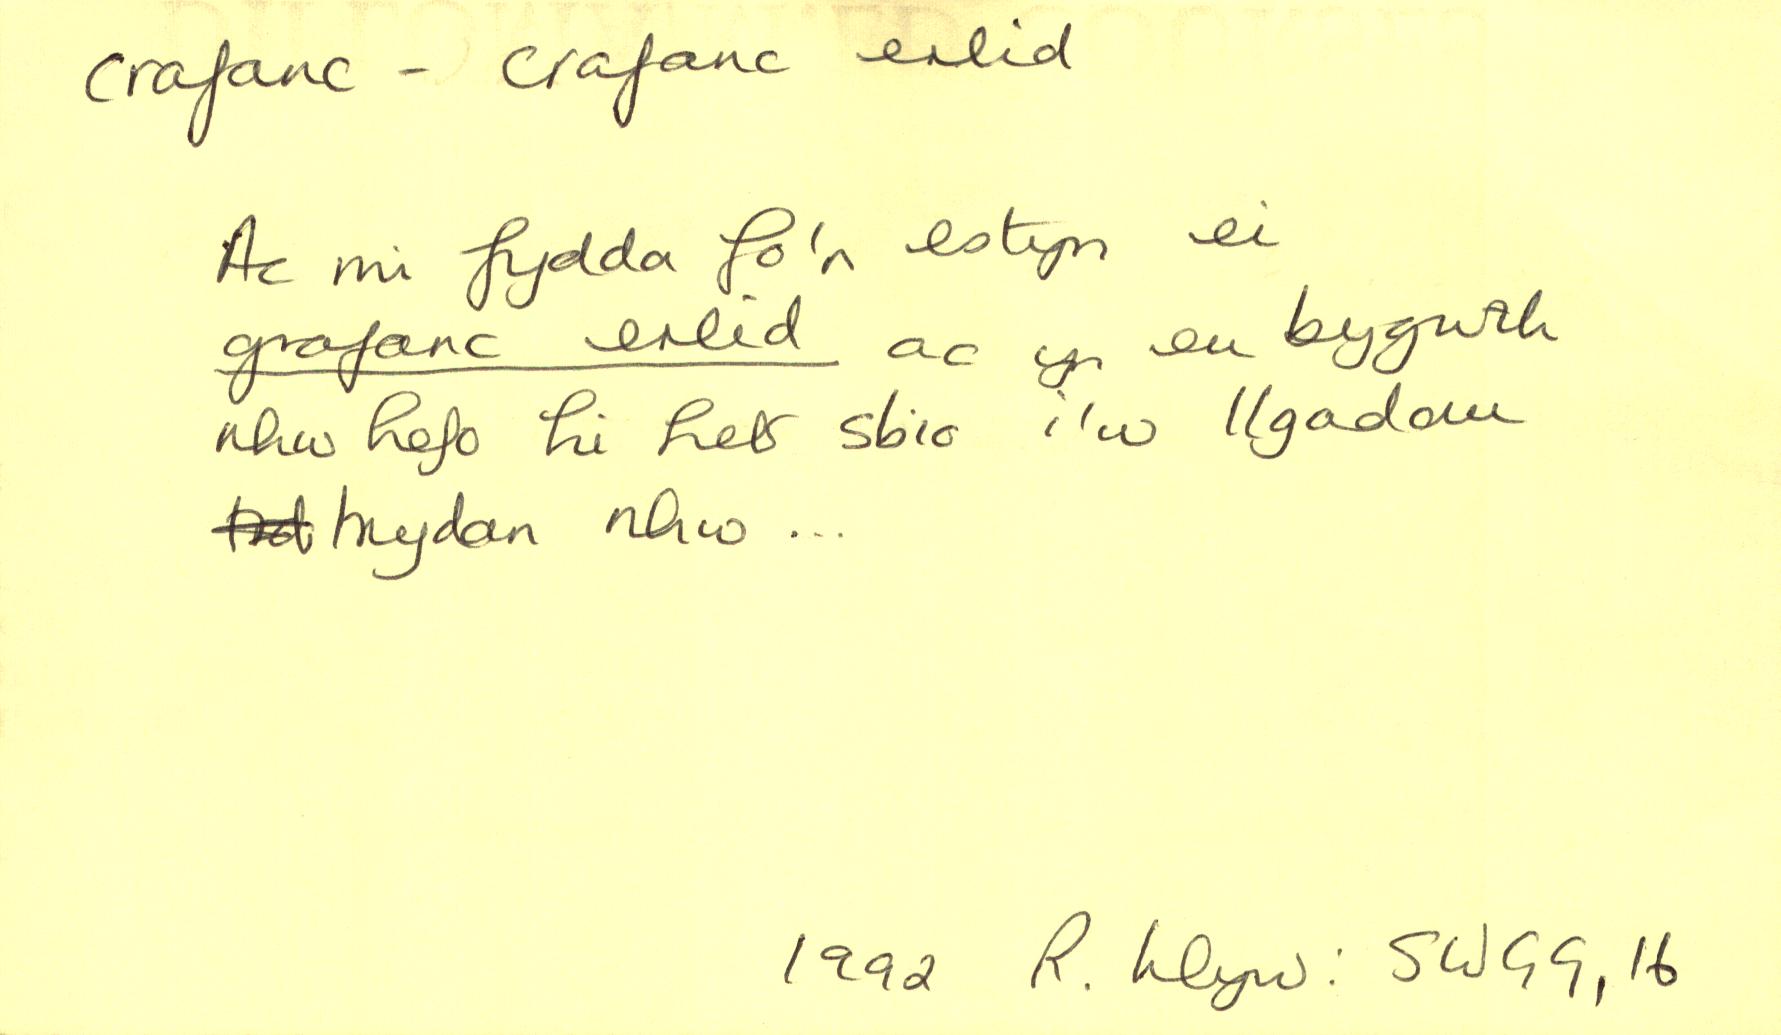 crafanc - crafanc erlid
Ac mi fydda fo'n estyn ei
grafanc erlid ac yn eu bygwth
nhw hefo hi heb sbio i'w llgadau
trydan nhw ...
1992 R. Llyw: SWGG, 16